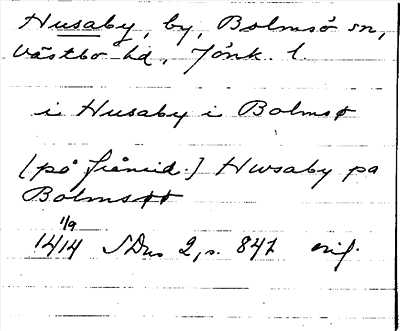 Husaby, by, Bolmsö sn,
Västbo hd, Jönk. l.
i Husaby i Bolmsø
[på frånsid.] Hwsaby pa
Bolmsøø
1/9
1414 SDns 2, s. 841 orig.